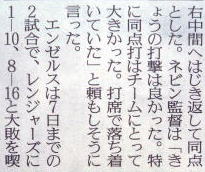 右中間へはじき返して同点
とした。ネビン監督は「き
ょうの打撃は良かった。特
に同点打はチームにとって
大きかった。打席で落ち着
いていた」と頼もしそうに
言った。
エンゼルスは7日までの
2試合で、レンジャーズに
1―10、8―16と大敗を喫